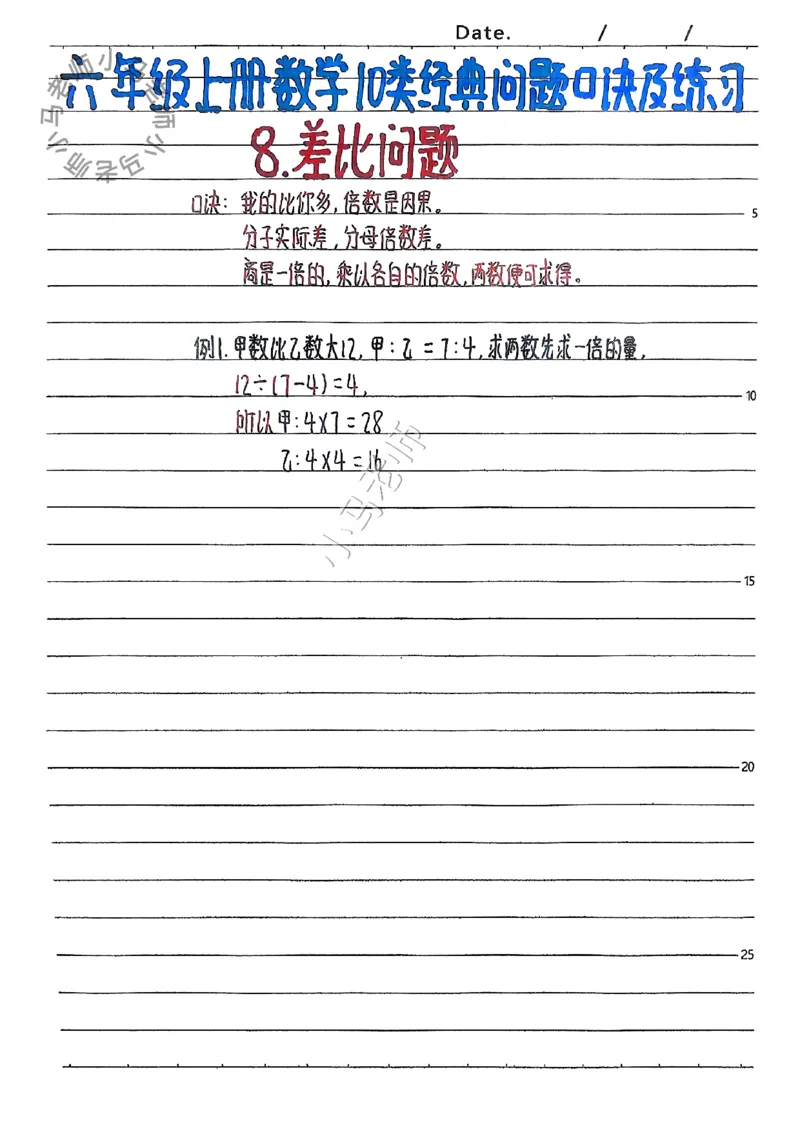 Date. / /
六年级上册数学10类经典问题口诀及练习
8.差比问题
口诀：我的比你多，倍数是因果。
5
分子实际差，分母倍数差。
商是一倍的，乘以各自的倍数，两数便可求得。
例1.甲数比乙数大12，甲：乙 = 7:4，求两数先求一倍的量，
12÷(7-4)=4，
10
所以甲:4×7=28
乙:4×4=16
小马老师
小马老师小马老师小马老师
15
20
25